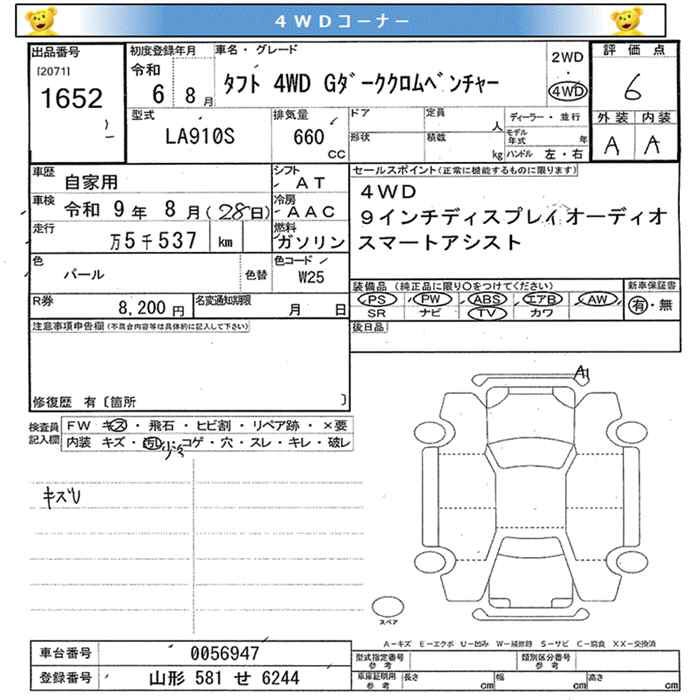 4WDコーナー
出品番号
[2071]
1652
初度登録年月
令和
6 8月
車名・グレード
タフト 4WD Gダーククロムベンチャー
2WD
・
4WD
評価点
6
外装 内装
A A
型式
LA910S
排気量
660
CC
ドア
形状
定員
人
積載
kg
ディーラー・並行
モデル年式
年
ハンドル 左・右
車歴
自家用
車検 令和 9年 8月(28日)
走行
万5千537 km
シフト
AT
冷房
AAC
燃料
ガソリン
色
パール
色替
色コード
W25
R券
8,200円
名変通知期限
月 日
セールスポイント(正常に機能するものに限ります)
4WD
9インチディスプレイオーディオ
スマートアシスト
装備品 (純正品に限り○をつけてください)
新車保証書
PS PW ABS エアB AW
有・無
SR ナビ TV カワ
後日品
注意事項申告欄(不具合内容等は具体的に記入して下さい)
修復歴 有〔箇所 〕
検査員
記入欄
FW キズ・飛石・ヒビ割・リペア跡・×要
内装 キズ・汚レ・コゲ・穴・スレ・キレ・破レ
少々
キズU
A1
スペア
A-キズ E-エクボ U-凹み W-補修跡 S-サビ C-腐食 XX-交換済
車台番号 0056947
登録番号 山形 581 せ 6244
型式指定番号
参考
類別区分番号
参考
車庫証明用
参考
長さ
cm
幅
cm
高さ
cm